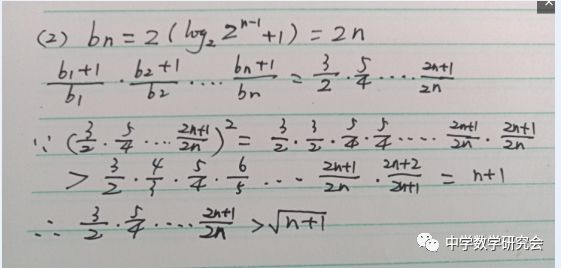 (2) bn = 2(log₂2ⁿ⁻¹+1) = 2n
(b₁+1)/b₁ · (b₂+1)/b₂ ···· (bn+1)/bn = 3/2 · 5/4 ···· (2n+1)/2n
∵ (3/2 · 5/4 ···· (2n+1)/2n)² = 3/2 · 3/2 · 5/4 · 5/4 ···· (2n+1)/2n · (2n+1)/2n
> 3/2 · 4/3 · 5/4 · 6/5 ··· (2n+1)/2n · (2n+2)/(2n+1) = n+1
∴ 3/2 · 5/4 ···· (2n+1)/2n > √(n+1)
中学数学研究会